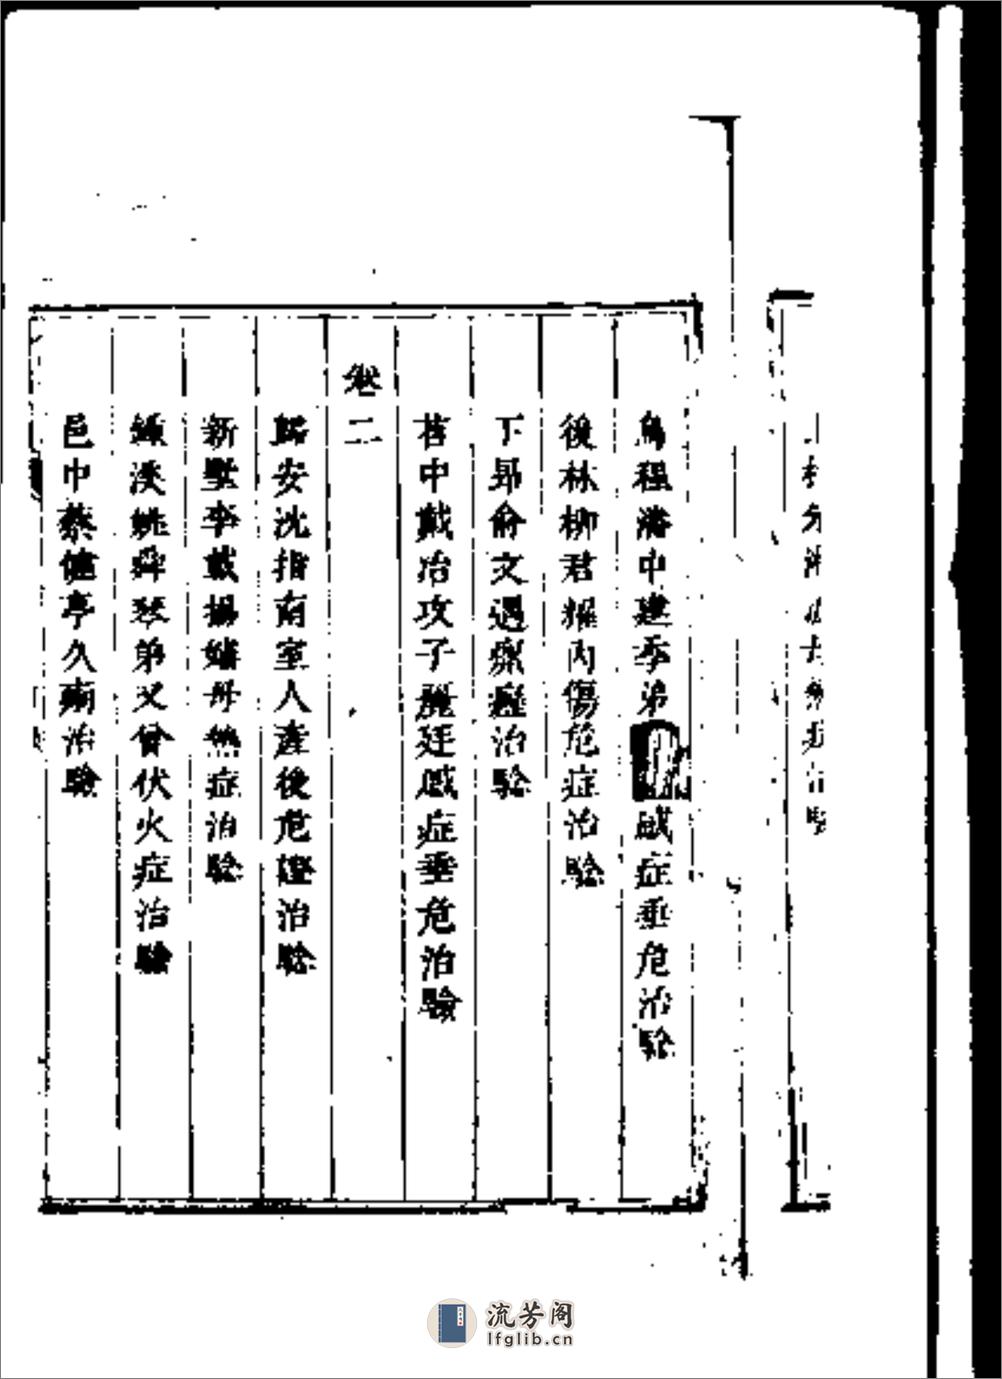 烏程潘中建季弟感症垂危治驗
後林柳君耀內傷危症治驗
下昴俞文遇痢症治驗
苕中戴冶攻子麗廷感症垂危治驗
卷二
歸安沈指南室人產後危證治驗
新墅李載揚嬸母熱症治驗
練溪姚舜琴弟又曾伏火症治驗
邑中蔡健亭久痢治驗
流芳阁
lfglib.cn